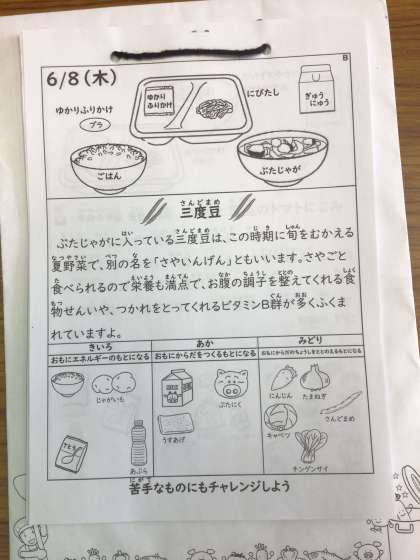 B
6/8(木)
ゆかりふりかけ
プラ
ゆかり
ふりかけ
にびたし
ぎゅう
にゅう
ごはん
ぶたじゃが
さんどまめ
三度豆
ぶたじゃがに入っている三度豆は、この時期に旬をむかえる
夏野菜で、別の名を「さやいんげん」ともいいます。さやごと
食べられるので栄養も満点で、お腹の調子を整えてくれる食
物せんいや、つかれをとってくれるビタミンB群が多くふくま
れていますよ。
きいろ
おもにエネルギーのもとになる
あか
おもにからだをつくるもとになる
みどり
おもにからだのちょうしをととのえるもとになる
じゃがいも
さとう
あぶら
ぶたにく
うすあげ
にんじん
たまねぎ
キャベツ
さんどまめ
チンゲンサイ
苦手なものにもチャレンジしよう